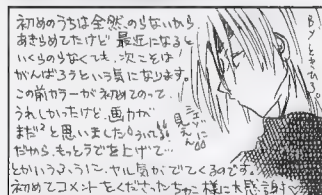 初めのうちは全然のらないから
あきらめてたけど最近になると
いくらのらなくても、次こそは
がんばろうという気になります。
この前カラーが初めてのって、
うれしかったけど、画力が
まだ2と思いました
だから、もっとうでを上げて…
とかいうふうに、ヤル気がでてくるのです。
初めてコメントをくださった
様に大感謝♡
三ばんに見えん
BY ときひろ。